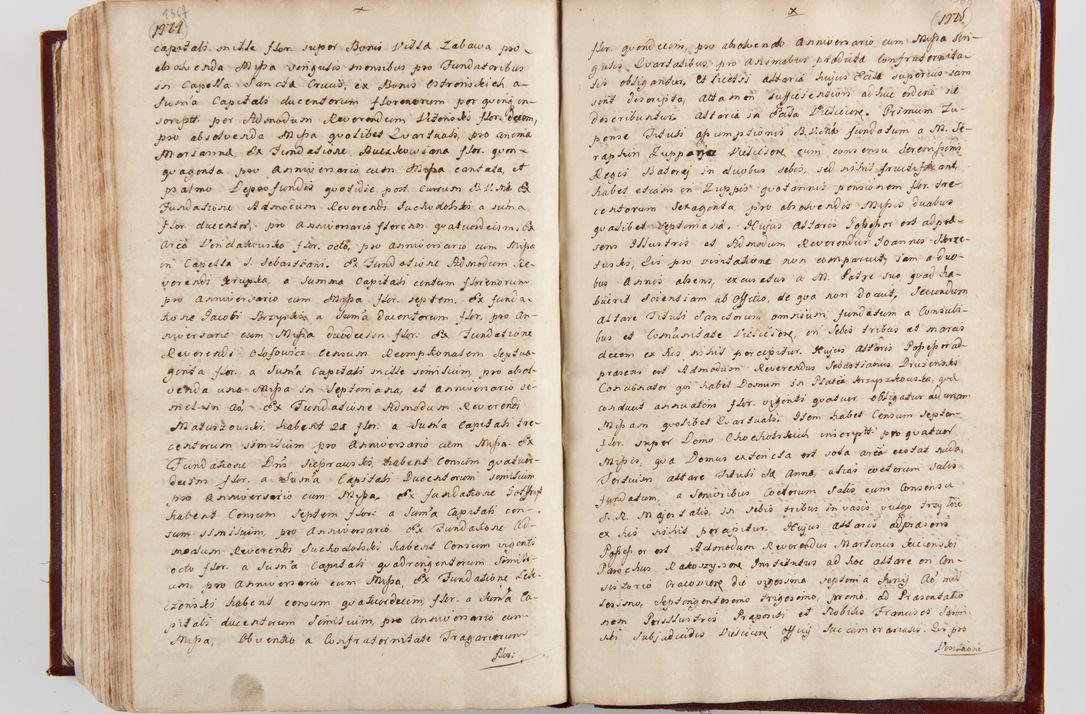 1367
(1724
capitali mille flor. super Bonis Villa Zabawa pro
absolvenda Missa singulis mensibus pro Fundatoribus
in Capella Sancta Crucis, ex Bonis Ostronskich a
Sum̃a Capitali ducentorum florenorum per quend. in-
script. per Admodum Reverendum flor. decem,
pro absolvenda Missa quolibet Quartuali, pro anima
Marianna, Ex Fundatione Buczkowiana flor. quin-
quaginta pro Anniversario cum Missa cantata, et
psalmo Deprofundis quotidie post Cursum B.V.M. Ex
Fundatione Admodum Reverendi Suchodolski a sum̃a
flor ducentor. pro Anniversario floreno. quatuordecim. Ex
Arca flor. octo, pro anniversario cum Missa
in Capella S. Sebastiani. Ex Fundatione Admodum Re-
verendi Krupka, a Summa Capitali centum florenorum
pro Anniversario cum Missa flor. septem. Ex funda-
tione Jacobi Strzyska a Sum̃a ducentorum flor. pro An-
niversario cum Missa duodecim flor. Ex Fundatione
Reverendi Olofowicz Censum Reemptionalem Septua-
ginta flor. a Sum̃a Capitali mille similium, pro absol-
venda una Missa in Septimana, et Anniversario se-
mel in Ao Ex Fundatione Admodum Reverendi
Matuszowski habent Ex flor. a Sum̃a Capitali tre-
centorum similium pro Anniversario cum Missa. Ex
Fundatione Dn̄i Sieprawski habent Censum quatuor-
decim flor. a Sum̃a Capitali Ducentorum similium
pro Anniversario cum Missa. Ex fundatione
habent Censum Septem flor: a Sum̃a Capitali cen-
tum similium, pro Anniversario. Ex Fundatione Ad-
modum Reverendi Suchodolski habent Censum viginti
octo flor. a Sum̃a Capitali quadringentorum Simili-
um, pro Anniversario cum Missa, Ex Fundatione Lesz-
czynski habent censum quatuordecim, flor. a Sum̃a Ca-
pitali ducentorum Similium, pro Anniversario cum
Missa, Obventio a Confraternitate Tragariorum
flor:
(1725
flor. quindecim, pro absolvendo Anniversario cum Missa sin-
gulis Quartalibus pro Animabus praedicta confraternita-
tis obligantur, Et licet altaria hujus Eccla superius sam
sint descripta, Attamen successioni adhuc ordine ite
describuntur. Altaria in Eccla Veliciens. Primum Zu-
penne Tituli assumptionis B.V.Mae fundatum a M. Se-
raphin Zuppario Veliciens cum consensu Serenissimi
Regis Batorej in duobus sebis, sed nihil fructificant,
habet etiam in Zuppis quotannis pensionem flor. tre-
centorum Sexaginta pro absolvendis Missis duabus
qualibet Septimana. Hujus Altaris Possessor est adprae-
sens Illustris et Admodum Reverendus Joannes Strze-
tuski, Qui pro visitatione non comparuit, jam a duo-
bus Annis absens, excusatus a M. Patre suo, quod ha-
buerit Licentiam ab Officio, de qua non docuit. Secundum
Altare Tituli Sanctorum omnium fundatum a Consuli-
bus et Com̃unitate Veliciens, in Sebis tribus et marcis
decem ex his nihil percipitur. Hujus Altaris Possessor ad
praesens est Admodum Reverendus Sebastianus Druzenski
Concionator qui habet Domum in Platea Strzyzkowska, quae
conducit annuatim flor. viginti quatuor obligatur ad unam
Missam quolibet Quartuali. Item habet Censum septem
flor. super Domo Chochotskich inscriptum pro quatuor
Missis, qua Domus extincta est sola area extat nuda.
Tertium Altare Tituli St. Anna, alias coetorum Salis
fundatum, a Senioribus Coetorum Salis cum consensu
S. R. Majestatis, in sebis tribus in vasis vulgo trzy
ex his nihil percipitur. Hujus Altaris adpraesens
Possessor est Admodum Reverendus Martinus Kucienski
Parochus Rakoszynens Institutus ad hoc altare in Con-
sistorio Cracoviens die vigesima septima Junij Ao mil-
lessimo, Septingentesimo trigesimo, primo. ad Praesentatio
nem Perillustris Praepositi et Nobilis Francisci
ski Subjudicis Veliciens officij Succamerariatus. Qui pro
Visitatione